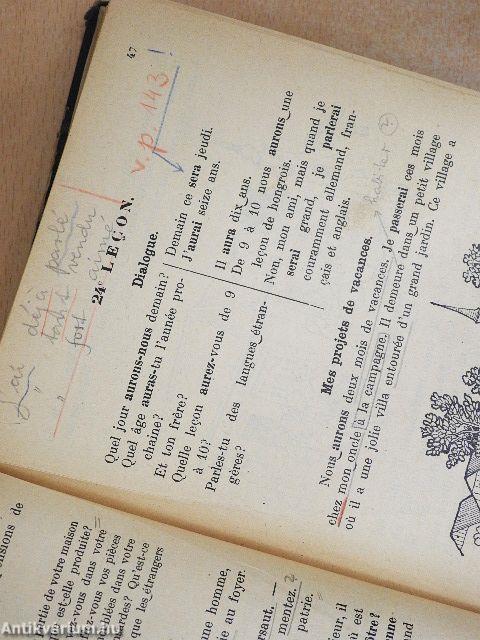 47
v. p. 143!
J'ai déjà parlé
" tout vendu
" fort aimé
24e LEÇON.
Dialogue.
Quel jour aurons-nous demain?
Quel âge auras-tu l'année pro-
chaine?
Et ton frère?
Quelle leçon aurez-vous de 9
à 10?
Parles-tu des langues étran-
gères?
Demain ce sera jeudi.
J'aurai seize ans.
Il aura dix ans.
De 9 à 10 nous aurons une
leçon de hongrois.
Non, mon ami, mais quand je
serai grand, je parlerai
couramment allemand, fran-
çais et anglais.
habiter
Mes projets de vacances.
Nous aurons deux mois de vacances. Je passerai ces mois
chez mon oncle à la campagne. Il demeure dans un petit village
où il a une jolie villa entourée d'un grand jardin. Ce village a
ensions de
tie de votre maison
est-elle produite?
z-vous dans votre
ez-vous vos pièces
llées dans votre
ardes? Qu'est-ce
que les étrangers
une homme,
ie au foyer.
rsaut,
mentez,
patrie.
Antikvárium.hu